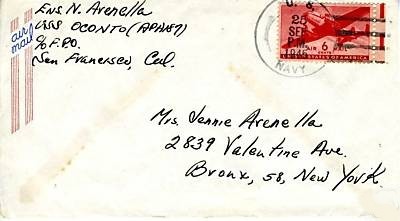 Ens N. Arenella
USS OCONTO (APA187)
c/o F.P.O.
San Francisco, Cal.
air
mail
U. S.
25
SEP
1945
NAVY
AIR 6 MAIL
CENTS
UNITED STATES OF AMERICA
Mrs. Jennie Arenella
2839 Valentine Ave.
Bronx, 58, New York